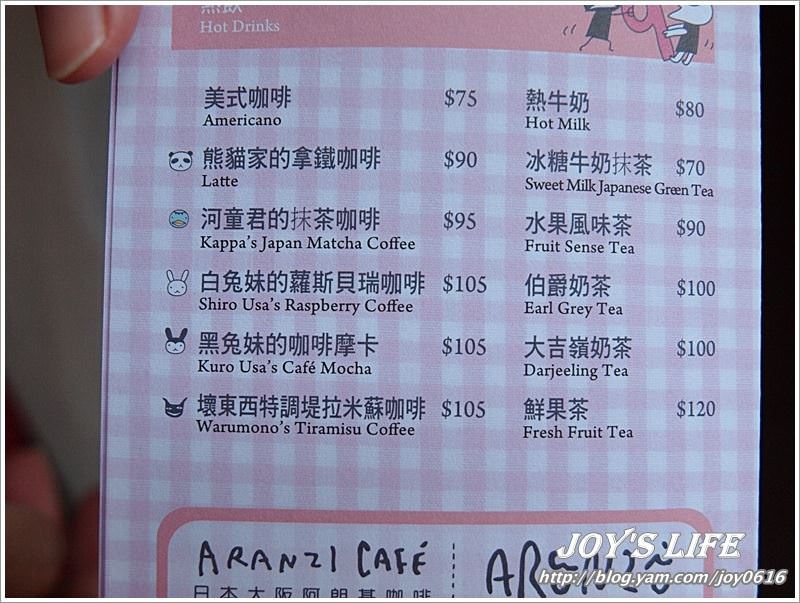 熱飲
Hot Drinks
美式咖啡 $75
Americano
熊貓家的拿鐵咖啡 $90
Latte
河童君的抹茶咖啡 $95
Kappa's Japan Matcha Coffee
白兔妹的蘿斯貝瑞咖啡 $105
Shiro Usa's Raspberry Coffee
黑兔妹的咖啡摩卡 $105
Kuro Usa's Café Mocha
壞東西特調堤拉米蘇咖啡 $105
Warumono's Tiramisu Coffee
熱牛奶 $80
Hot Milk
冰糖牛奶抹茶 $70
Sweet Milk Japanese Green Tea
水果風味茶 $90
Fruit Sense Tea
伯爵奶茶 $100
Earl Grey Tea
大吉嶺奶茶 $100
Darjeeling Tea
鮮果茶 $120
Fresh Fruit Tea
ARANZI CAFÉ
日本大阪阿朗基咖啡
JOY'S LIFE
http://blog.yam.com/joy0616